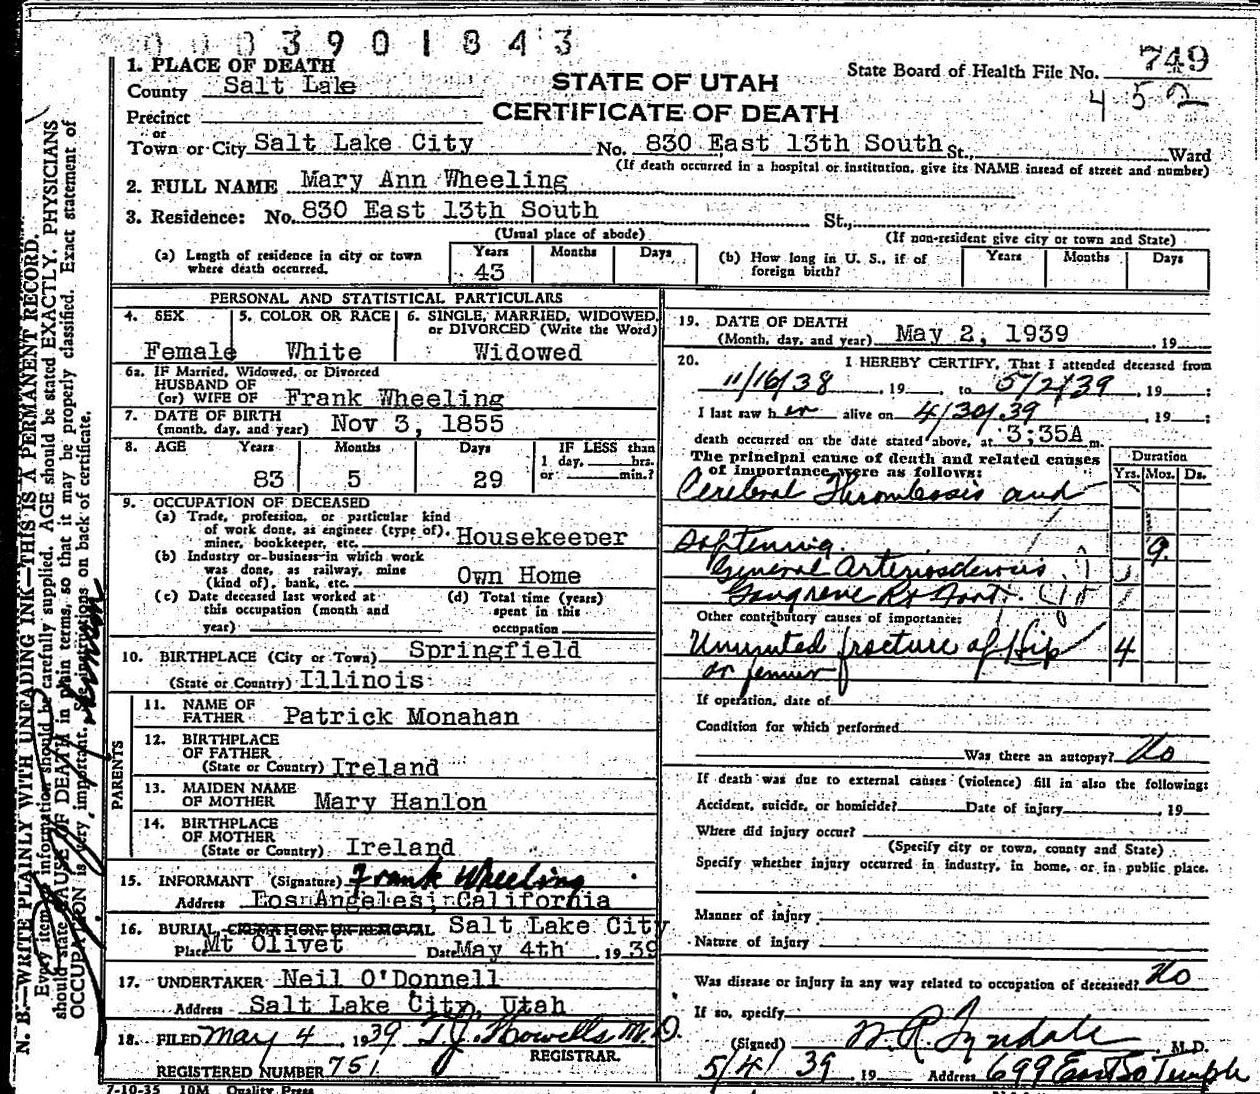 0003901843
749
452
State Board of Health File No.
STATE OF UTAH
CERTIFICATE OF DEATH
1. PLACE OF DEATH
County Salt Lake
Precinct
or
Town or City Salt Lake City No. 830 East 13th South St., Ward
(If death occurred in a hospital or institution, give its NAME insead of street and number)
2. FULL NAME Mary Ann Wheeling
3. Residence: No. 830 East 13th South St.,
(Usual place of abode) (If non-resident give city or town and State)
(a) Length of residence in city or town where death occurred. Years 43 Months Days
(b) How long in U. S., if of foreign birth? Years Months Days
PERSONAL AND STATISTICAL PARTICULARS
4. SEX Female
5. COLOR OR RACE White
6. SINGLE, MARRIED, WIDOWED, or DIVORCED (Write the Word) Widowed
6a. IF Married, Widowed, or Divorced
HUSBAND OF
(or) WIFE OF Frank Wheeling
7. DATE OF BIRTH
(month, day, and year) Nov 3, 1855
8. AGE Years 83 Months 5 Days 29
IF LESS than
1 day, hrs.
or min.?
9. OCCUPATION OF DECEASED
(a) Trade, profession, or particular kind
of work done, as engineer (type of),
miner, bookkeeper, etc. Housekeeper
(b) Industry or business in which work
was done, as railway, mine
(kind of), bank, etc. Own Home
(c) Date deceased last worked at
this occupation (month and
year)
(d) Total time (years)
spent in this
occupation
10. BIRTHPLACE (City or Town) Springfield
(State or Country) Illinois
PARENTS
11. NAME OF
FATHER Patrick Monahan
12. BIRTHPLACE
OF FATHER
(State or Country) Ireland
13. MAIDEN NAME
OF MOTHER Mary Hanlon
14. BIRTHPLACE
OF MOTHER
(State or Country) Ireland
15. INFORMANT (Signature) Frank Wheeling
Address Los Angeles, California
16. BURIAL, CREMATION OR REMOVAL Salt Lake City
Place Mt Olivet Date May 4th 1939
17. UNDERTAKER Neil O'Donnell
Address Salt Lake City, Utah
18. FILED May 4, 1939 T.J. Howells M.D.
REGISTRAR.
REGISTERED NUMBER 751
7-10-35 10M Quality Press
19. DATE OF DEATH
(Month, day, and year) May 2, 1939 , 19
20. I HEREBY CERTIFY, That I attended deceased from
11/16/38 , 19 to 5/2/39 , 19 ;
I last saw her alive on 4/30/39 , 19 ;
death occurred on the date stated above, at 3:35A m.
The principal cause of death and related causes
of importance were as follows:
Duration
Yrs. Mos. Ds.
Cerebral Thrombosis and
Softening. 9
General Arteriosclerosis
Gangrene Rt Foot.
Other contributory causes of importance:
Ununited fracture of Hip 4
or femur
If operation, date of
Condition for which performed
Was there an autopsy? No
If death was due to external causes (violence) fill in also the following:
Accident, suicide, or homicide? Date of injury , 19
Where did injury occur?
(Specify city or town, county and State)
Specify whether injury occurred in industry, in home, or in public place.
Manner of injury
Nature of injury
Was disease or injury in any way related to occupation of deceased? No
If so, specify
(Signed) W. R. Tyndale M.D.
5/4/39 , 19 Address 699 East So Temple
N. B.—WRITE PLAINLY WITH UNFADING INK—THIS IS A PERMANENT RECORD.
Every item of information should be carefully supplied. AGE should be stated EXACTLY. PHYSICIANS
should state CAUSE OF DEATH in plain terms, so that it may be properly classified. Exact statement of
OCCUPATION is very important. See instructions on back of certificate.